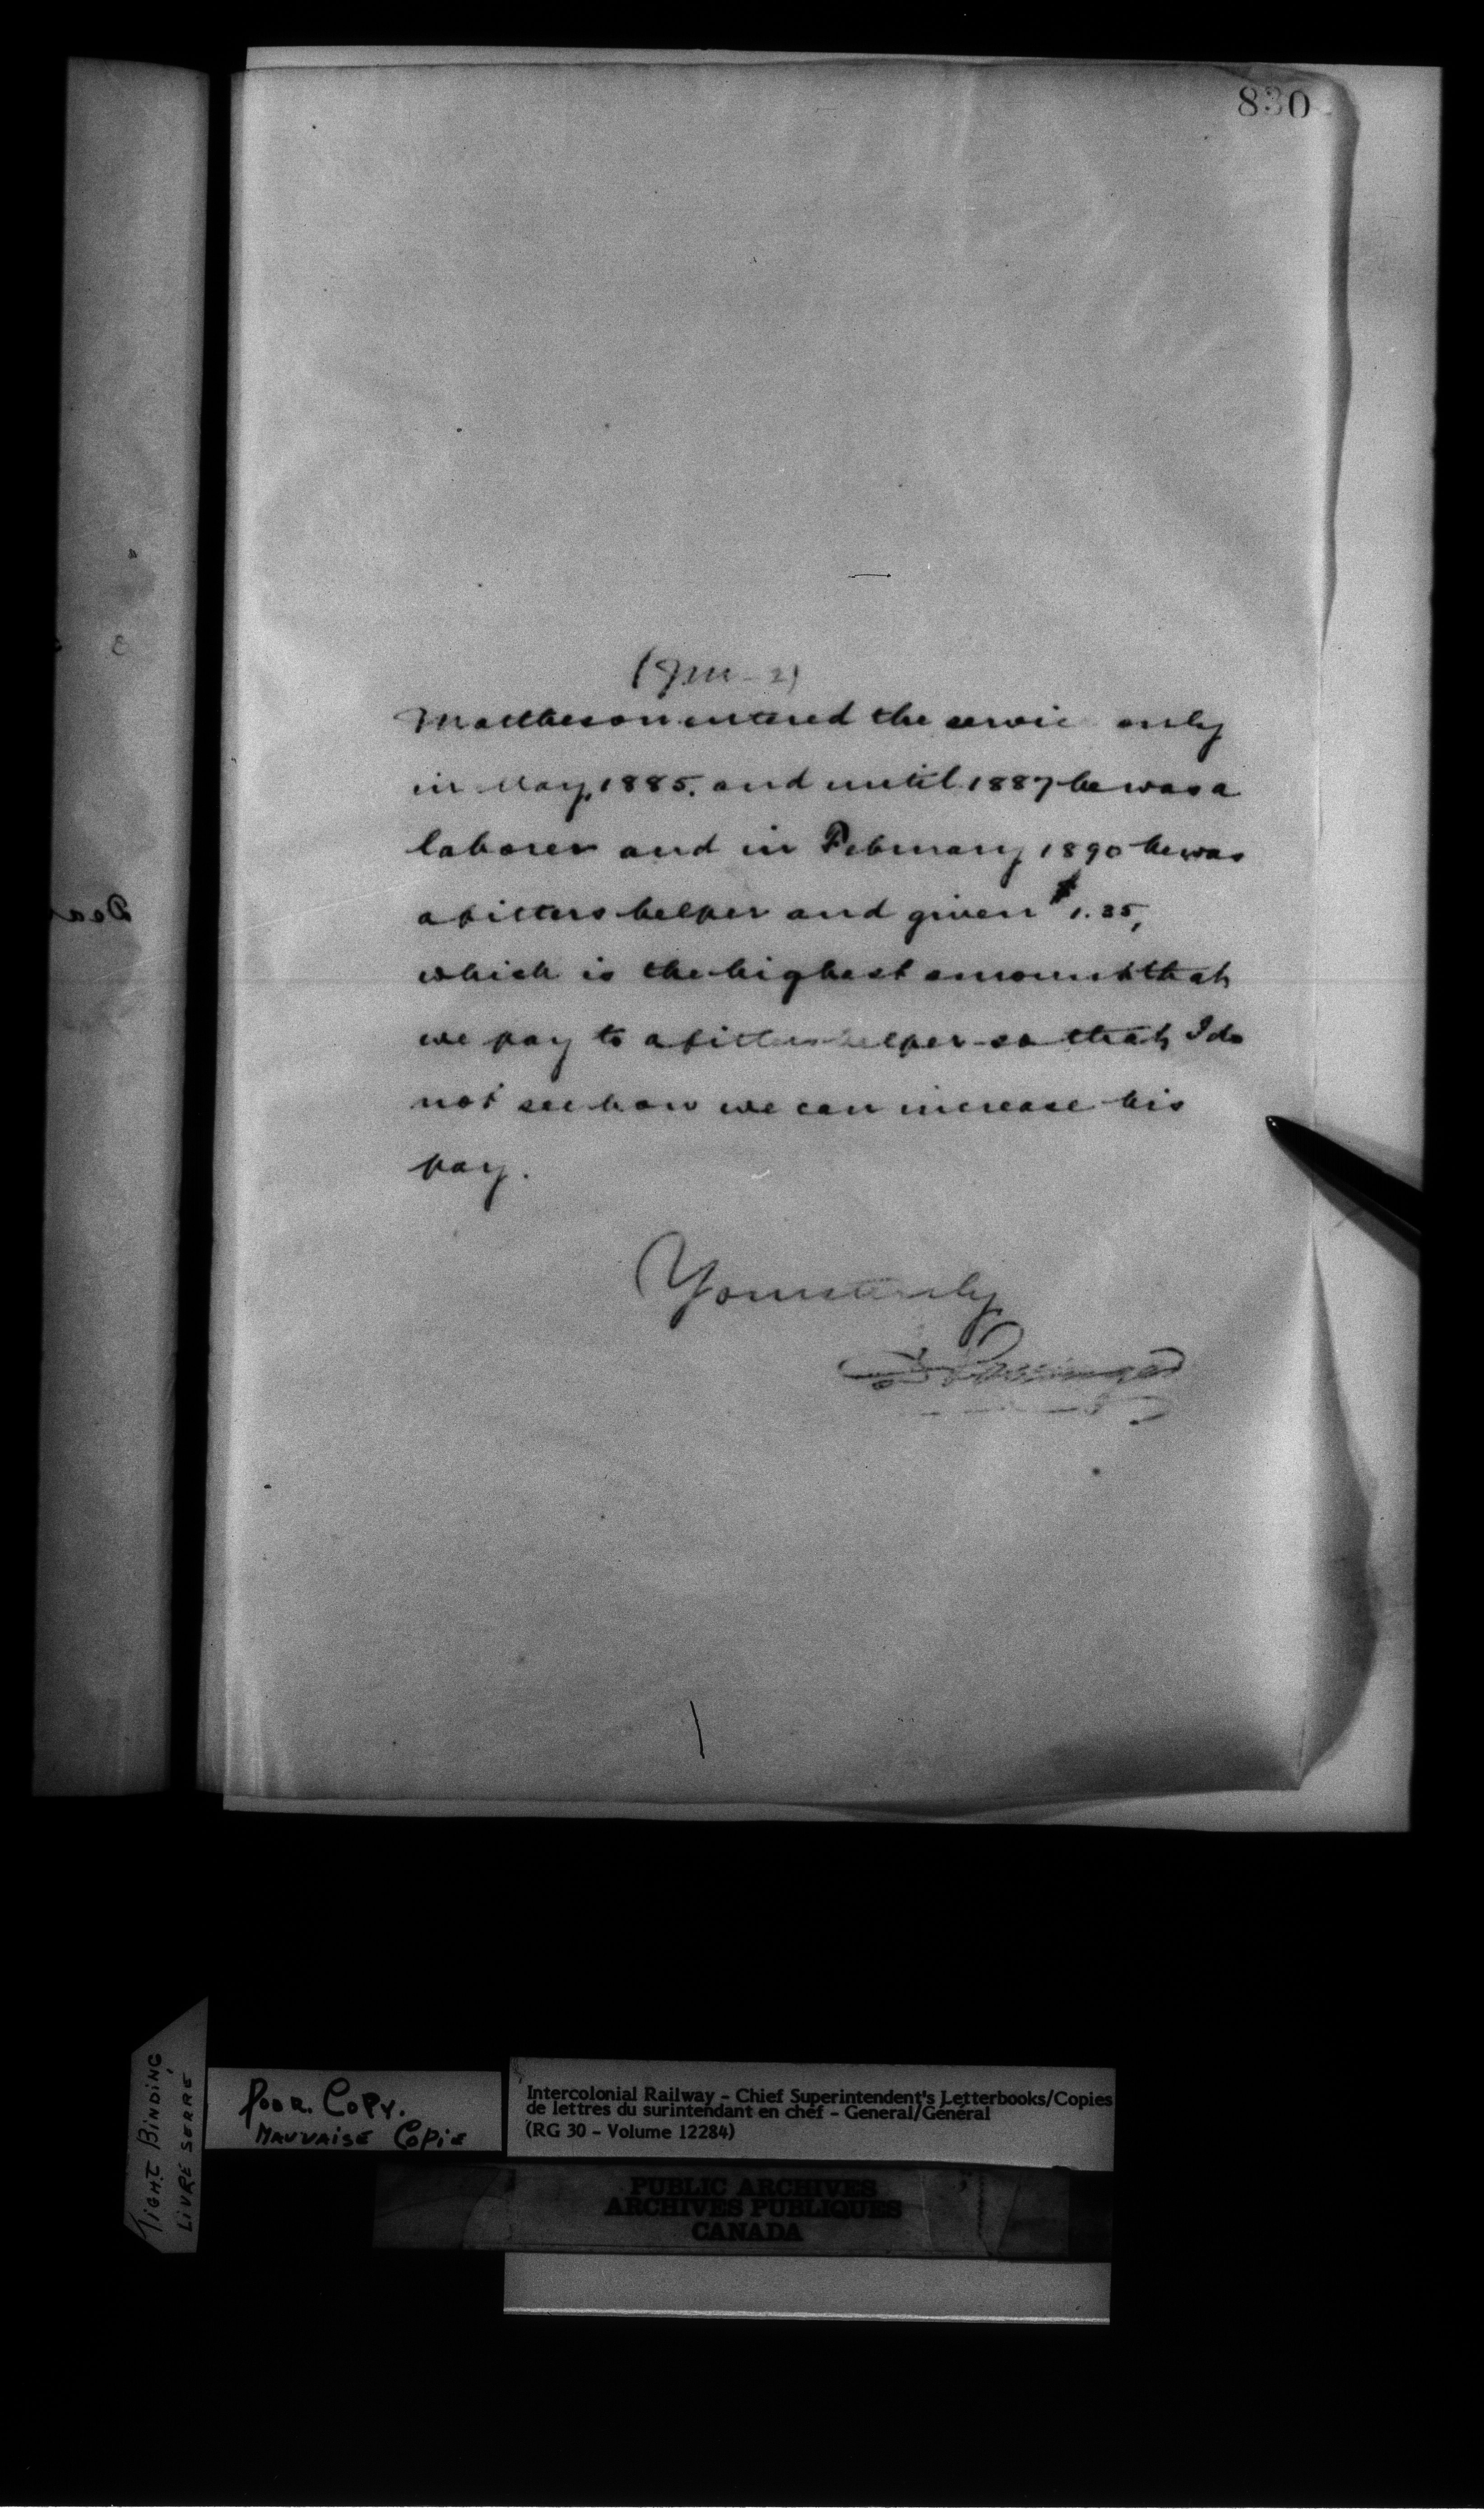 830
(JM - 2)
Mattheson entered the servic only
in May, 1885. and until 1887 he was a
laborer and in February 1890 he was
a fitters helper and given $1.35,
which is the highest amount that
we pay to a fitters helper so that I do
not see how we can increase his
pay.
Yours truly
D Pottinger
Dea
TIGHT BINDING
LIVRE SERRÉ
POOR COPY.
MAUVAISE COPIE
Intercolonial Railway - Chief Superintendent's Letterbooks/Copies
de lettres du surintendant en chef - General/Général
(RG 30 - Volume 12284)
PUBLIC ARCHIVES
ARCHIVES PUBLIQUES
CANADA